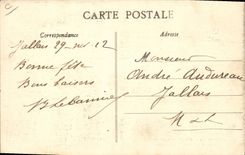 CARTE POSTALE
Correspondance
Adresse
Jallais 29 12
Bonne fête
Bons baisers
Monsieur
André Audureau
Jallais
M & L